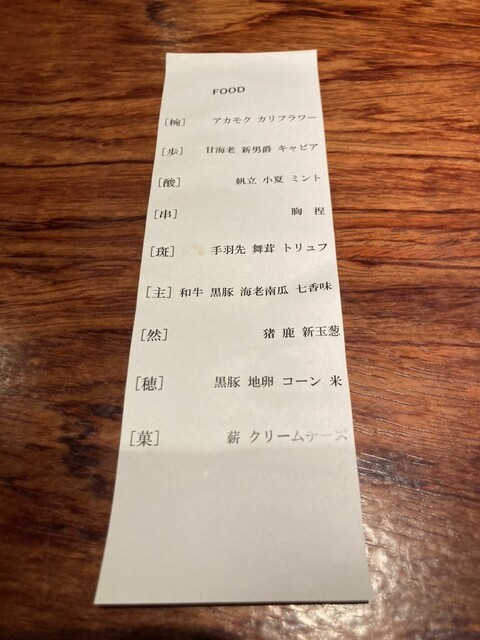 FOOD
[椀] アカモク カリフラワー
[歩] 甘海老 新男爵 キャビア
[酸] 帆立 小夏 ミント
[串] 胸 捏
[斑] 手羽先 舞茸 トリュフ
[主] 和牛 黒豚 海老南瓜 七香味
[然] 猪 鹿 新玉葱
[穂] 黒豚 地卵 コーン 米
[菓] 薪 クリームチーズ